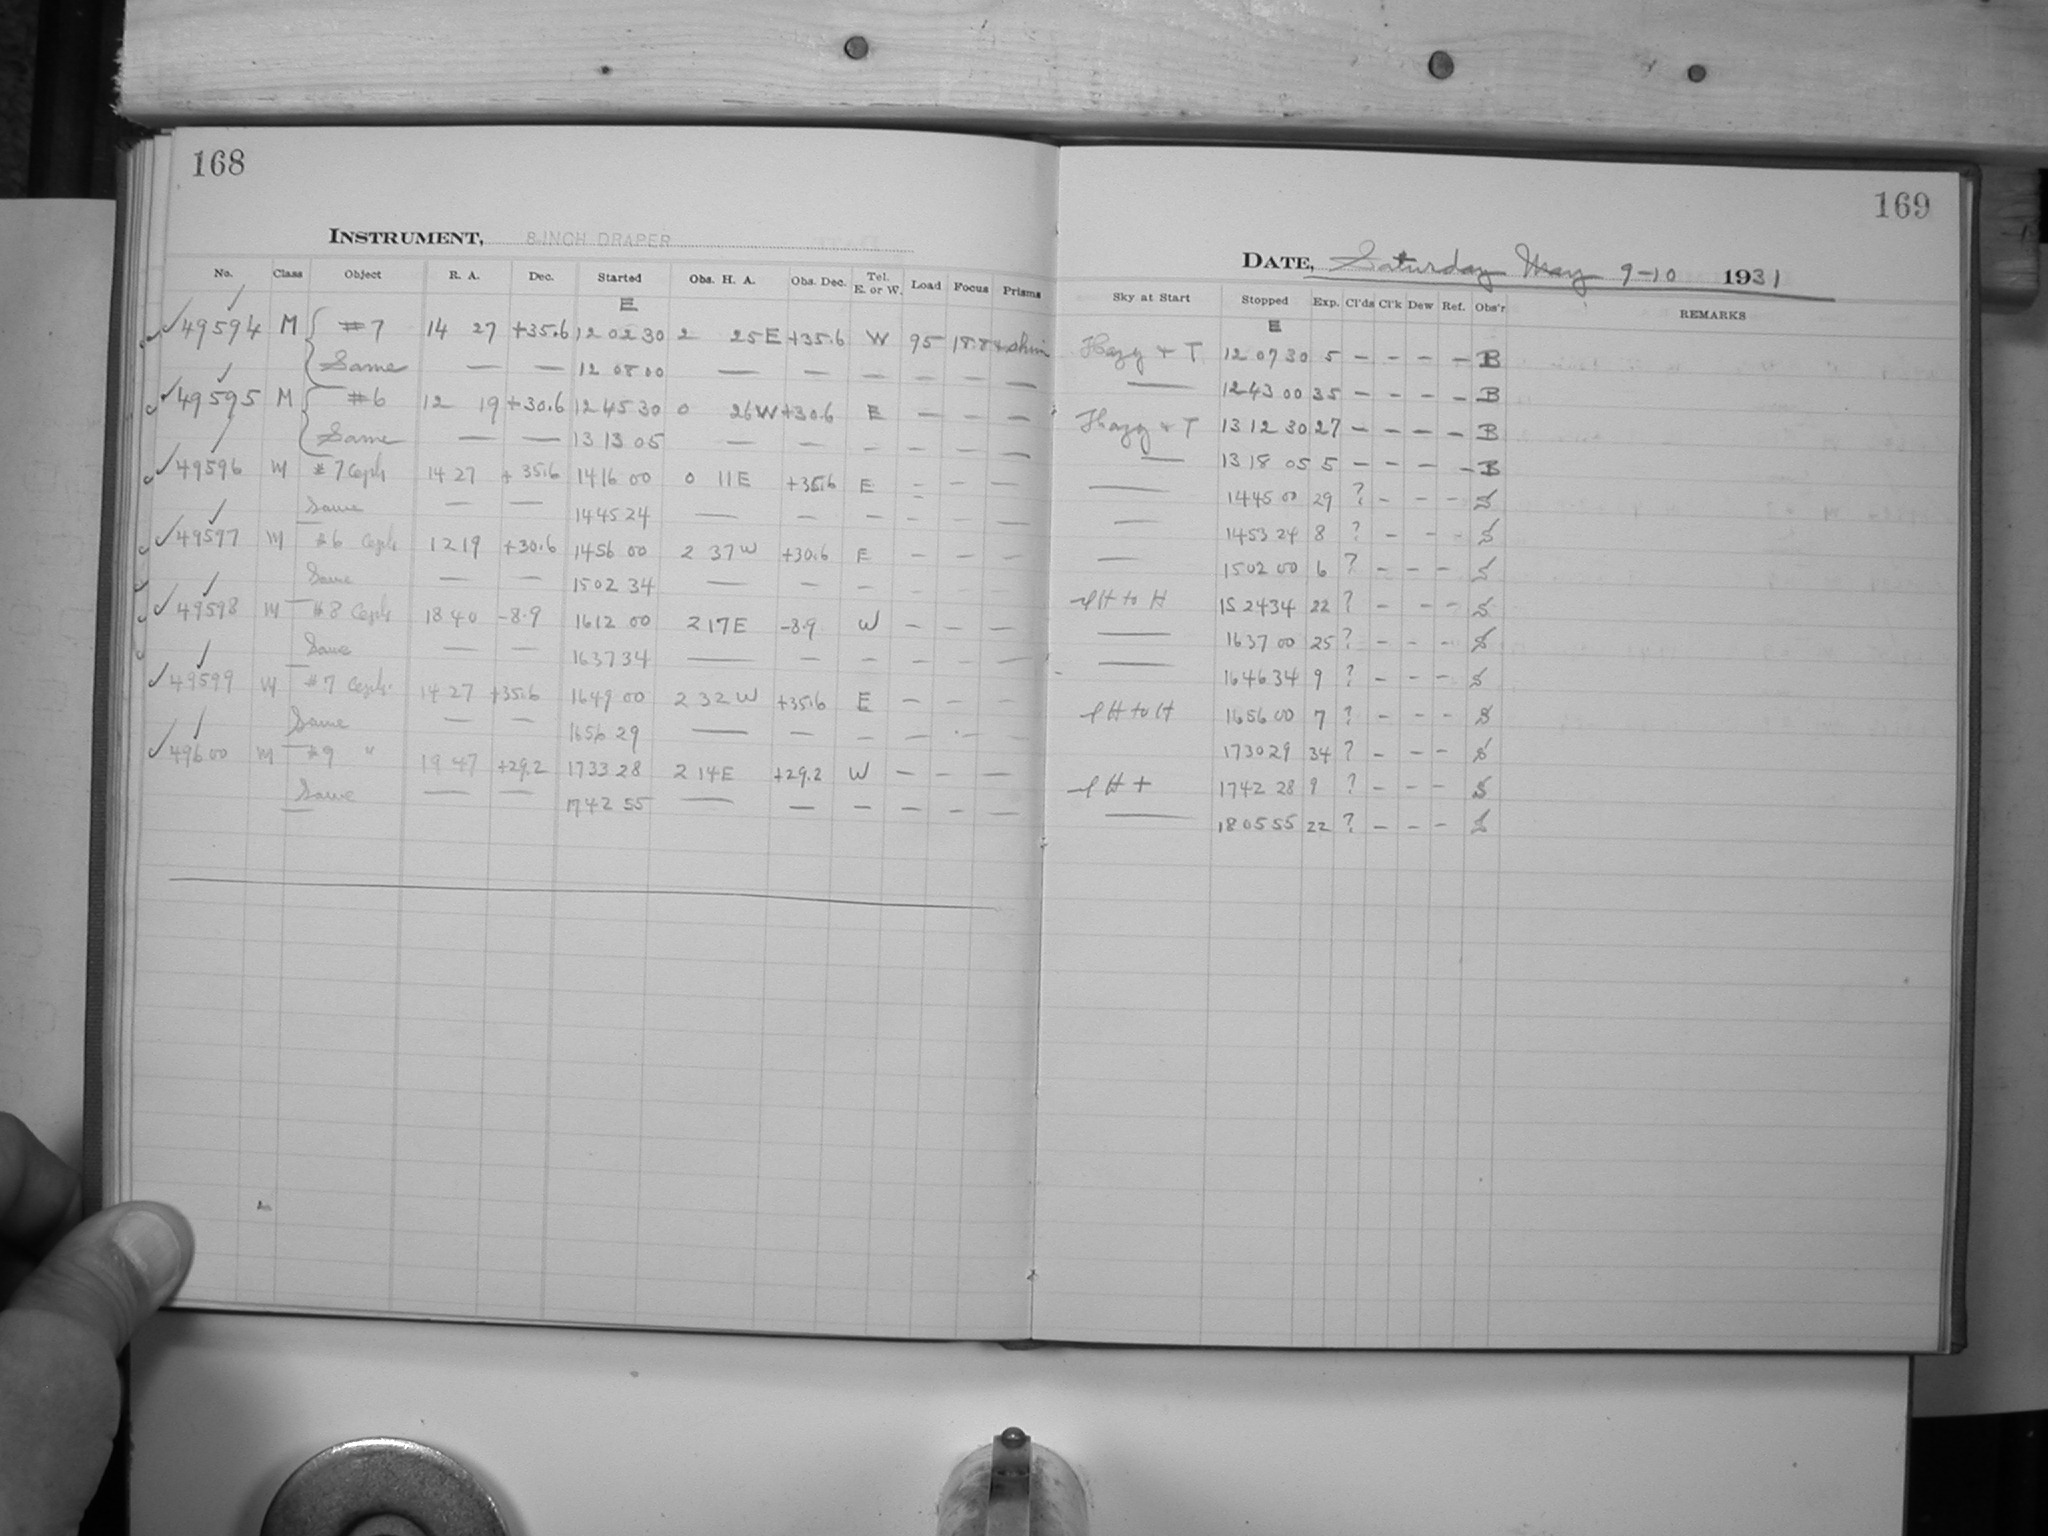 168
INSTRUMENT, 8-INCH DRAPER
No. Class Object R. A. Dec. Started Obs. H. A. Obs. Dec. Tel. E. or W. Load Focus Prisms
E
✓49594 M { #7 14 27 +35.6 12 02 30 2 25E +35.6 W 95
Same — — 12 08 00 — — — — — —
✓49595 M { #6 12 19 +30.6 12 45 30 0 26W +30.6 E — — —
Same — — 13 13 05 — — — — — —
✓49596 M #7 Ceph 14 27 +35.6 14 16 00 0 11E +35.6 E — — —
Same — — 14 45 24 — — — — — —
✓49597 M #6 Ceph 12 19 +30.6 14 56 00 2 37W +30.6 E — — —
Same — — 15 02 34 — — — — — —
✓49598 M #8 Ceph 18 40 -8.9 16 12 00 2 17E -8.9 W — — —
Same — — 16 37 34 — — — — — —
✓49599 M #7 Ceph. 14 27 +35.6 16 49 00 2 32W +35.6 E — — —
Same — — 16 56 29 — — — — — —
✓49600 M #9 " 19 47 +29.2 17 33 28 2 14E +29.2 W — — —
Same — — 17 42 55 — — — — — —
169
DATE, Saturday May 9-10 1931
Sky at Start Stopped Exp. Cl'ds Cl'k Dew Ref. Obs'r REMARKS
E
Hazy + T 12 07 30 5 — — — — B
— 12 43 00 35 — — — — B
Hazy + T 13 12 30 27 — — — — B
— 13 18 05 5 — — — — B
— 14 45 00 29 ? — — — S
— 14 53 24 8 ? — — — S
— 15 02 00 6 ? — — — S
H to H 15 24 34 22 ? — — — S
— 16 37 00 25 ? — — — S
— 16 46 34 9 ? — — — S
H to H 16 56 00 7 ? — — — S
17 30 29 34 ? — — — S
H + 17 42 28 9 ? — — — S
— 18 05 55 22 ? — — — S